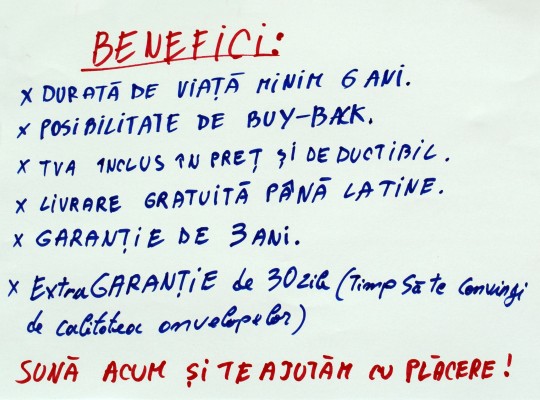 BENEFICI:
x DURATĂ DE VIAȚĂ MINIM 6 ANI.
x POSIBILITATE DE BUY-BACK.
x TVA INCLUS ÎN PREȚ ȘI DEDUCTIBIL.
x LIVRARE GRATUITĂ PÂNĂ LA TINE.
x GARANȚIE DE 3 ANI.
x ExtraGARANȚIE de 30 zile (Timp să te convingi
de calitatea anvelopelor)
SUNĂ ACUM ȘI TE AJUTĂM CU PLĂCERE!